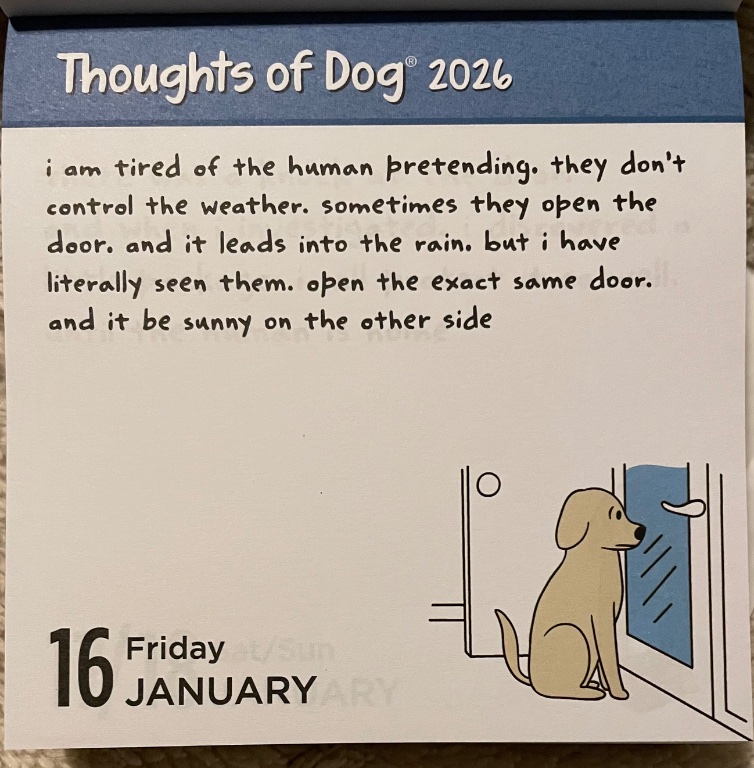 Thoughts of Dog® 2026
i am tired of the human pretending. they don't
control the weather. sometimes they open the
door. and it leads into the rain. but i have
literally seen them. open the exact same door.
and it be sunny on the other side
16 Friday
JANUARY